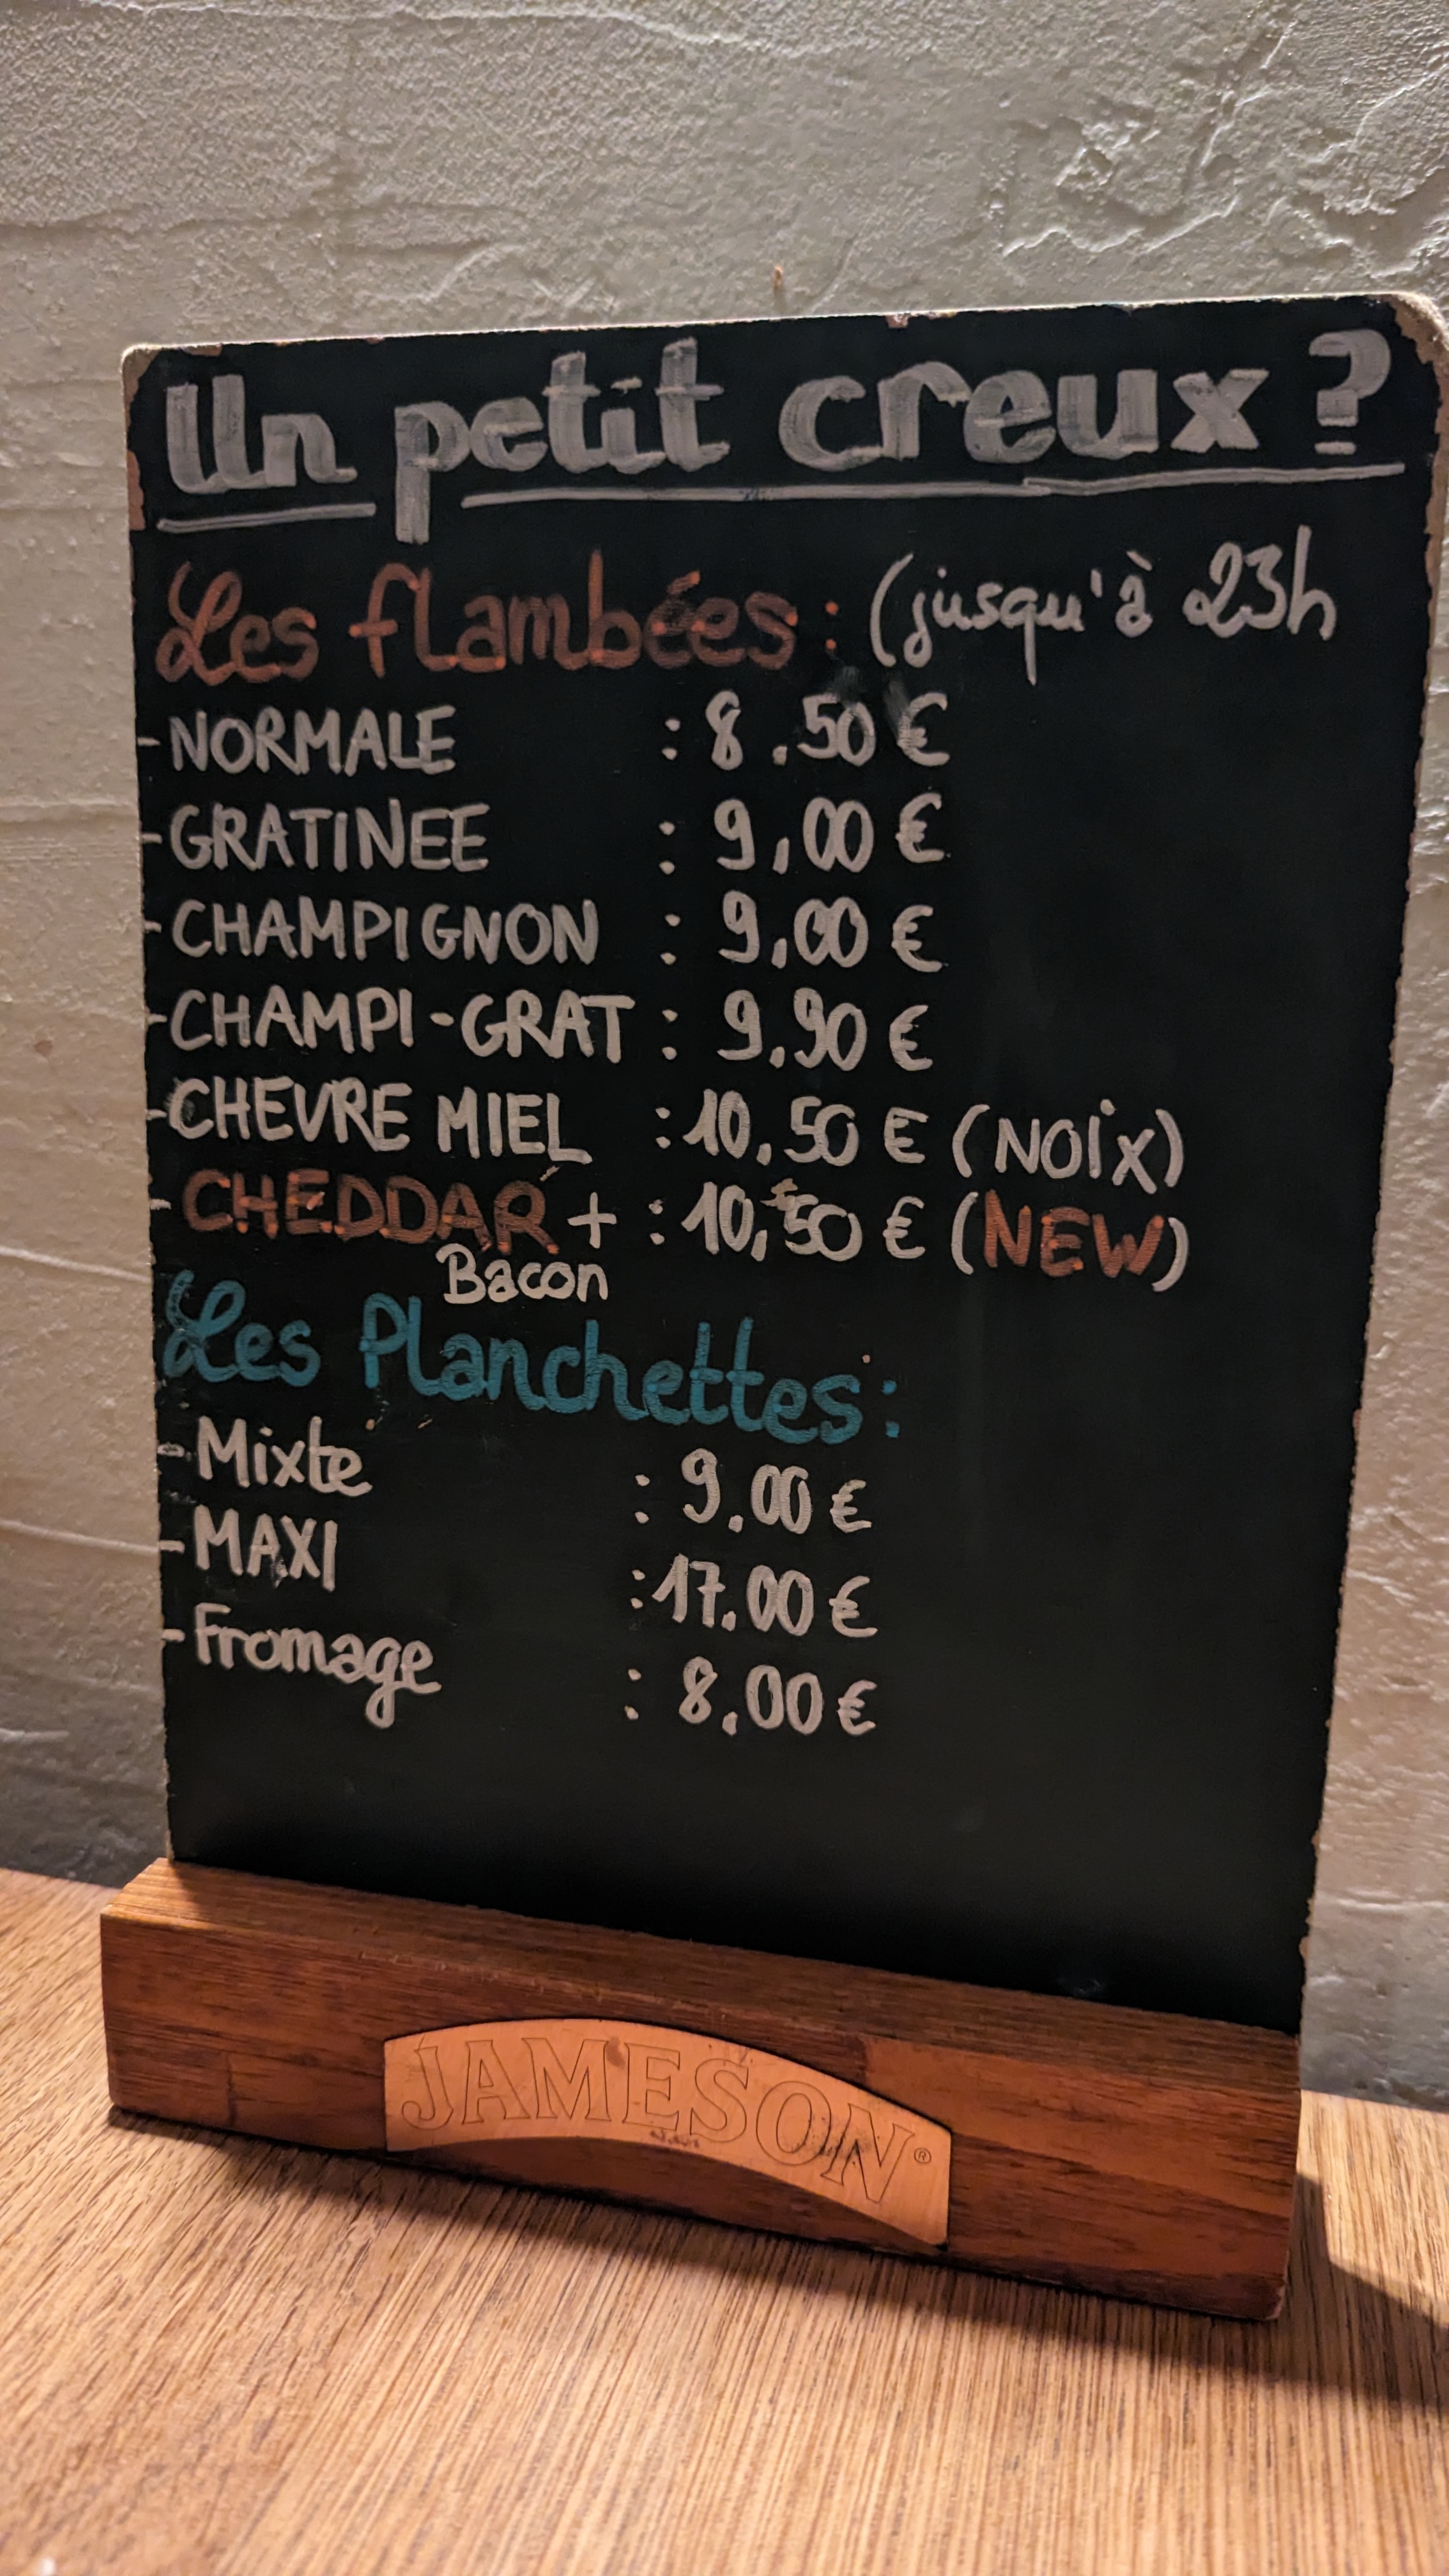 Un petit creux ?
Les flambées : (jusqu'à 23h
- NORMALE : 8.50 €
- GRATINEE : 9,00 €
- CHAMPIGNON : 9,00 €
- CHAMPI-GRAT : 9,90 €
- CHEVRE MIEL : 10,50 € (NOIX)
- CHEDDAR + : 10,50 € (NEW)
Bacon
Les Planchettes :
- Mixte : 9.00 €
- MAXI : 17.00 €
- Fromage : 8,00 €
JAMESON®